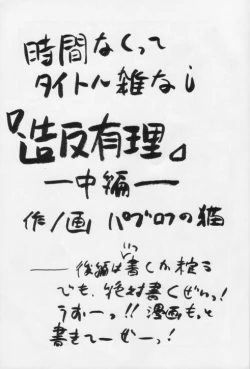 時間なくって
タイトル雑なし
『造反有理。』
―中編―
作/画 パブロフの猫
――後編はいつ書くか控う
でも、絶対書くぜぃっ!
うおーっ!!漫画もっと
書きてーぜーっ!